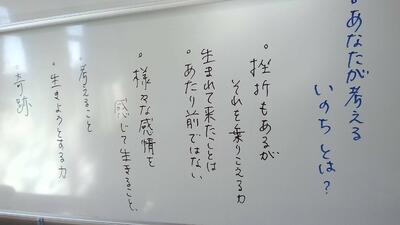 ・あなたが考える
いのちとは?
・挫折もあるが
それを乗りこえる力
生まれて来たことは
・あたり前ではない
・様々な感情を
感じて生きること、
・考えること
・生きようとする力
・奇跡